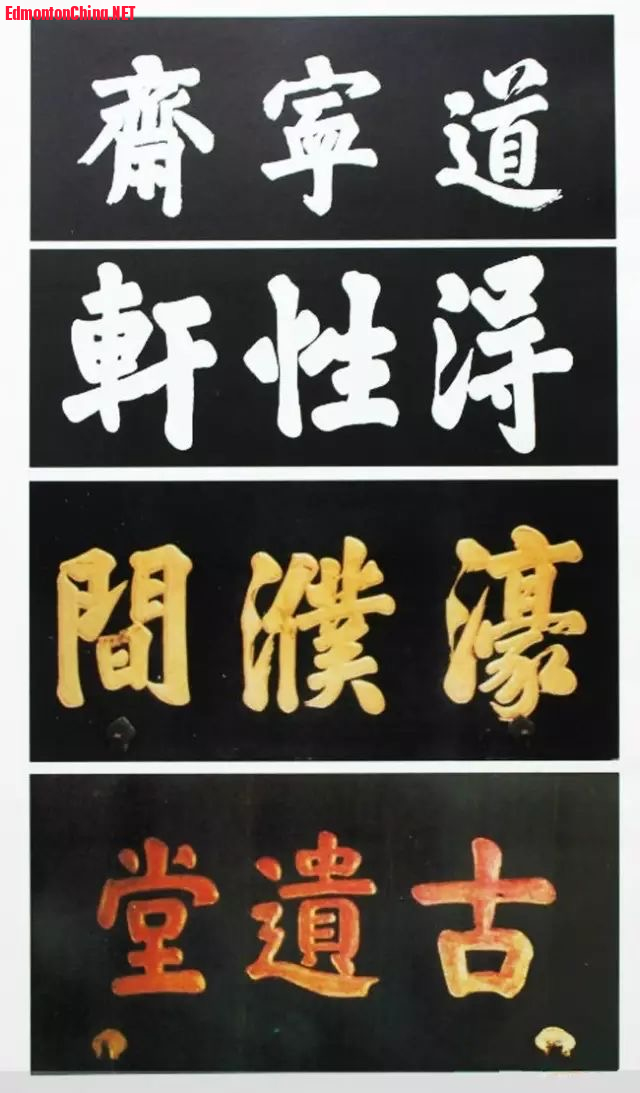 EdmontonChina.NET
道寧齋
得性軒
濠濮間
古遺堂